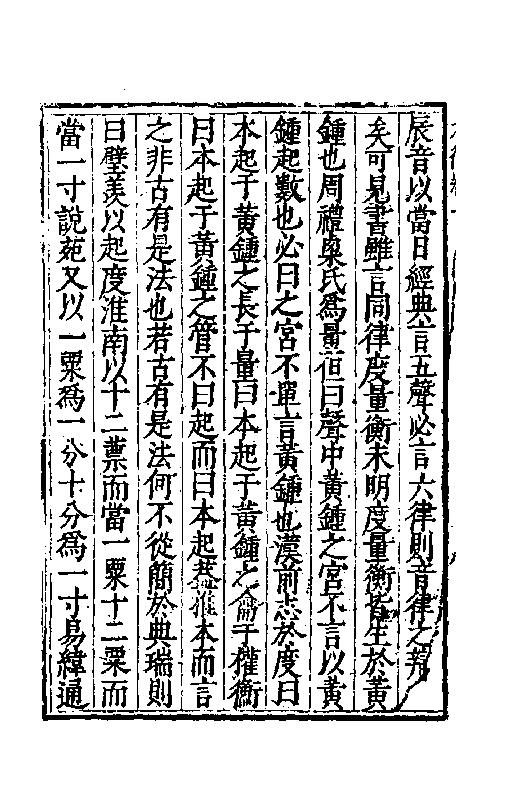 辰音以當日經典言五聲必言六律則音律之
矣可見書雖言同律度量衡未明度量衡皆生於黃
鍾也周禮㮚氏為量但曰聲中黃鍾之宮不言以黃
鍾起數也必曰之宮不單言黃鍾也漢前志於度曰
本起于黃鍾之長于量曰本起于黃鍾之龠于權衡
曰本起于黃鍾之管不曰起而曰本起蓋推本而言
之非古有是法也若古有是法何不從簡於典瑞則
曰璧羨以起度淮南以十二蔈而當一粟十二粟而
當一寸說苑又以一粟為一分十分為一寸易緯通